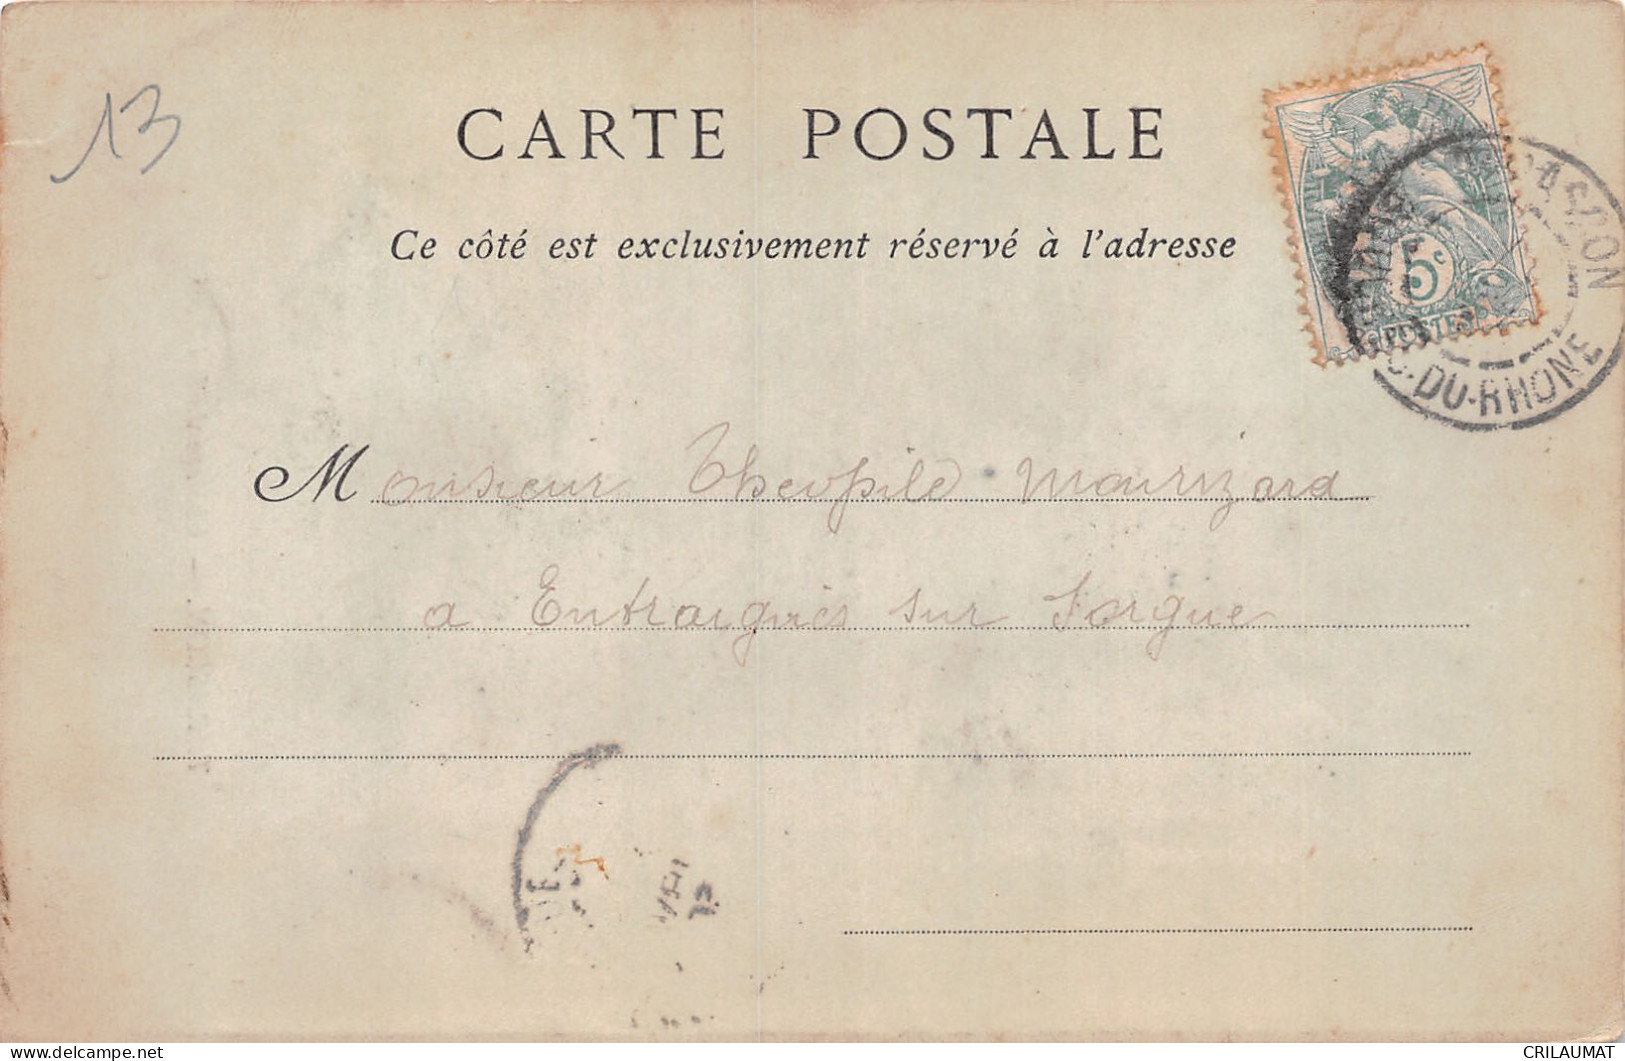 13
CARTE POSTALE
Ce côté est exclusivement réservé à l'adresse
5c
POSTES
DU-RHONE
Monsieur Theopile Mourizard
a Entraigues sur Sorgue
CRILAUMAT